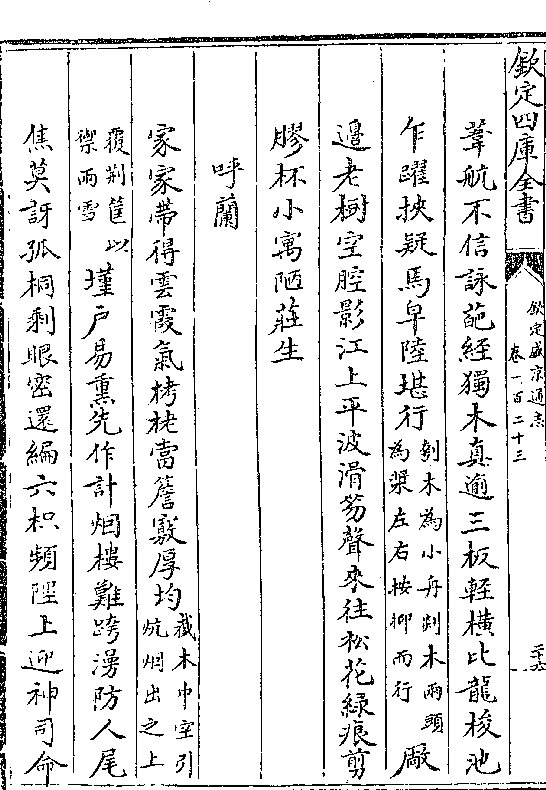 欽定四庫全書
欽定盛京通志
卷一百二十三
二十六
葦航不信詠葩經獨木真逾三板輕橫比龍梭池
乍躍挾疑馬皁陸堪行刳木為小舟剡木兩頭
為槳左右按抑而行廠
邉老樹空腔影江上平波滑笏聲來往松花緑痕剪
膠杯小寓陋莊生
呼蘭
家家帶得雲霞氣栲栳當簷竅厚均截木中空引
炕烟出之上
覆荆筐以
禦雨雪墐户易熏先作計烟樓難跨漫防人尾
焦莫訝孤桐剩眼密還編六枳頻陘上迎神司命